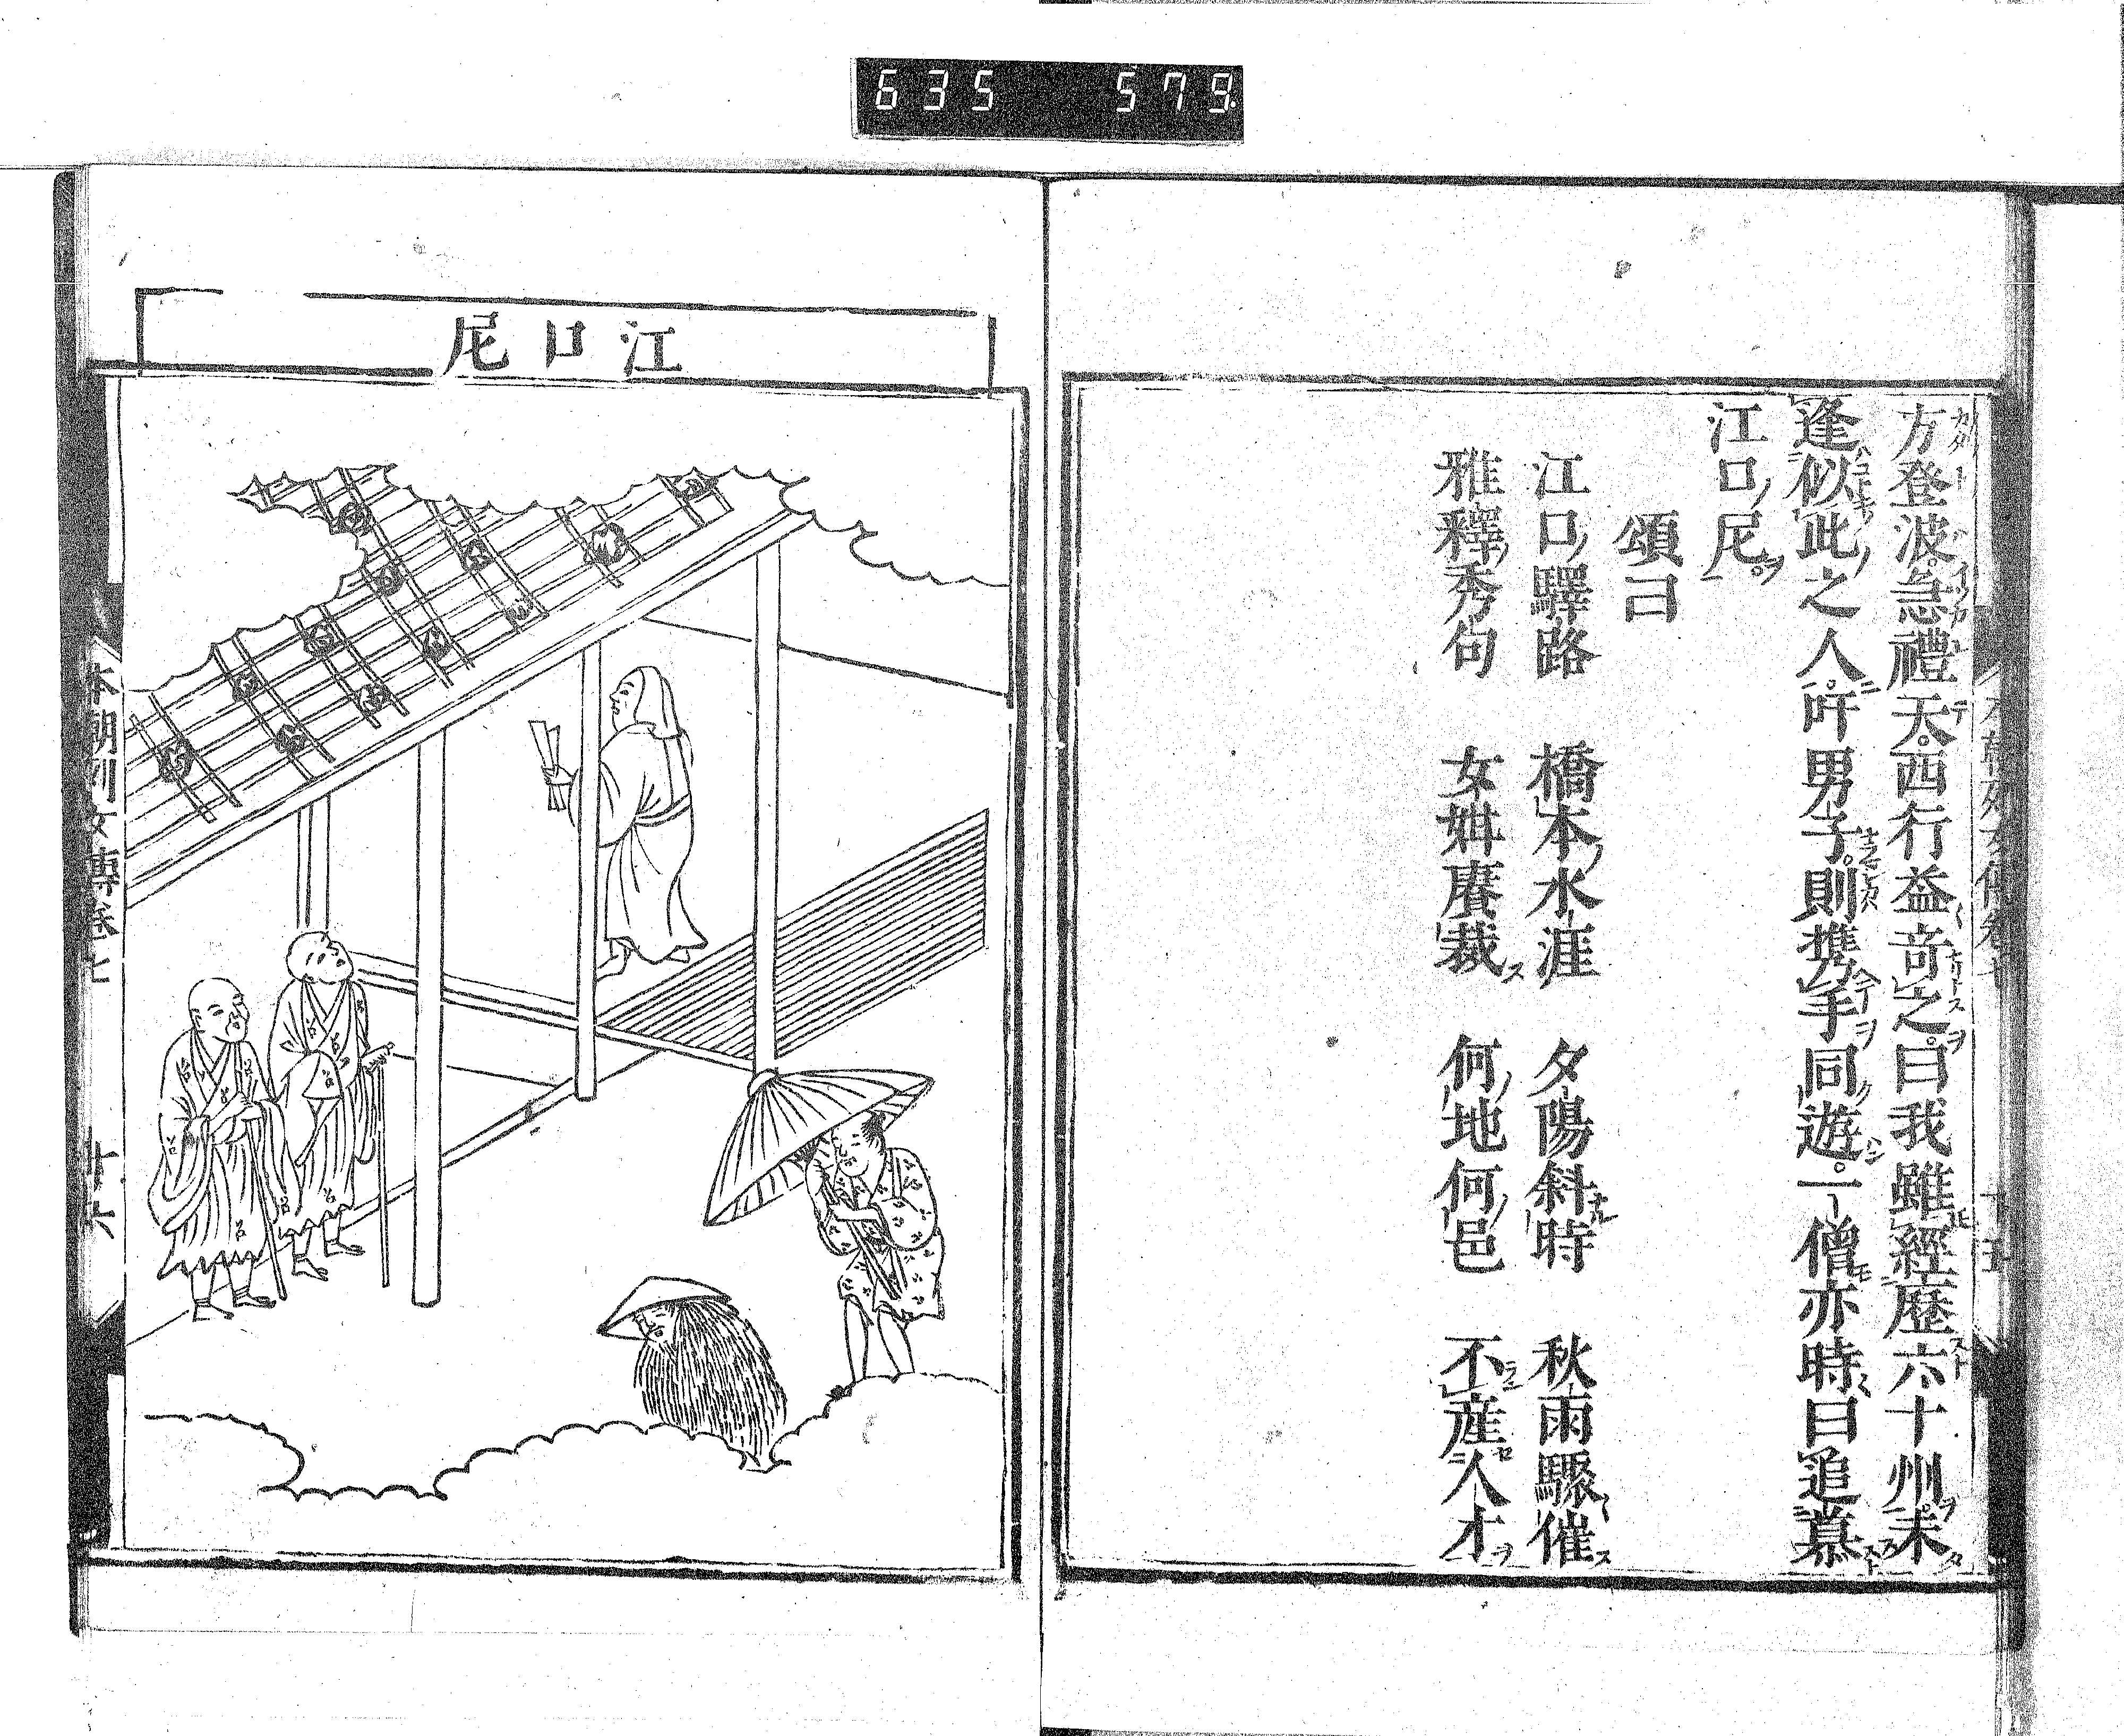 635 579.
方登波急禮天西行益竒之曰我雖經歷六十州未
逢似此之人吁男子則携手同遊一僧亦時曰追慕
江口尼
頌曰
江口驛路 橋本水涯 夕陽斜時 秋雨驟催
雅釋秀句 女姓賡裁 何地何邑 不産人才
江口尼
本朝列女傳卷七 十六